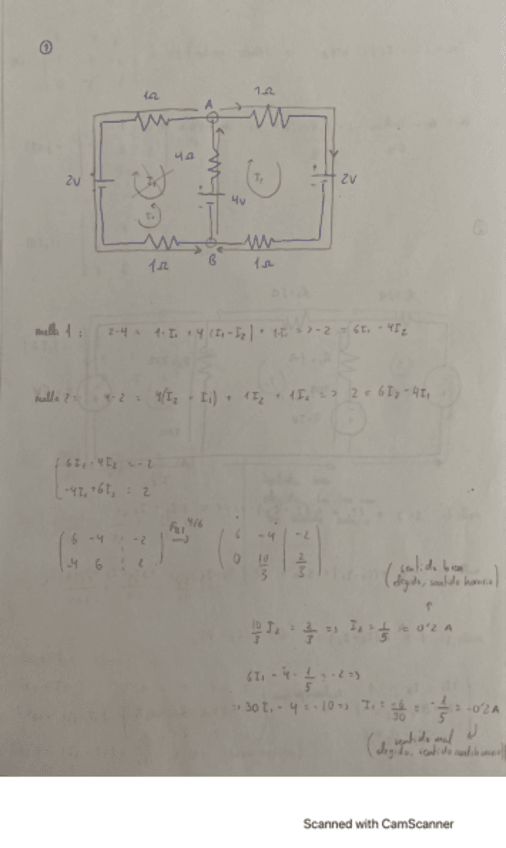 ①
1Ω 1Ω
A
4Ω
2V I₁ I₁ 2V
+ -
4V
I₁
1Ω B 1Ω
malla 1: 2-4 = 1·I₁ + 4(I₁-I₂) + 1·I₁ => -2 = 6I₁ - 4I₂
malla 2: 4-2 = 4(I₂ - I₁) + 1I₂ + 1I₂ => 2 = 6I₂ - 4I₁
6I₁ - 4I₂ = -2
-4I₁ + 6I₂ = 2
6 -4 -2 4/6 6 -4 -2
-4 6 2 0 10/3 2/3
(sentido bien
elegido, sentido horario)
10/3 I₂ = 2/3 => I₂ = 1/5 = 0'2 A
6I₁ - 4·1/5 = -2 =>
=> 30I₁ - 4 = -10 => I₁ = -6/30 = -1/5 = -0'2A
(sentido mal
elegido, sentido antihorario)
Scanned with CamScanner